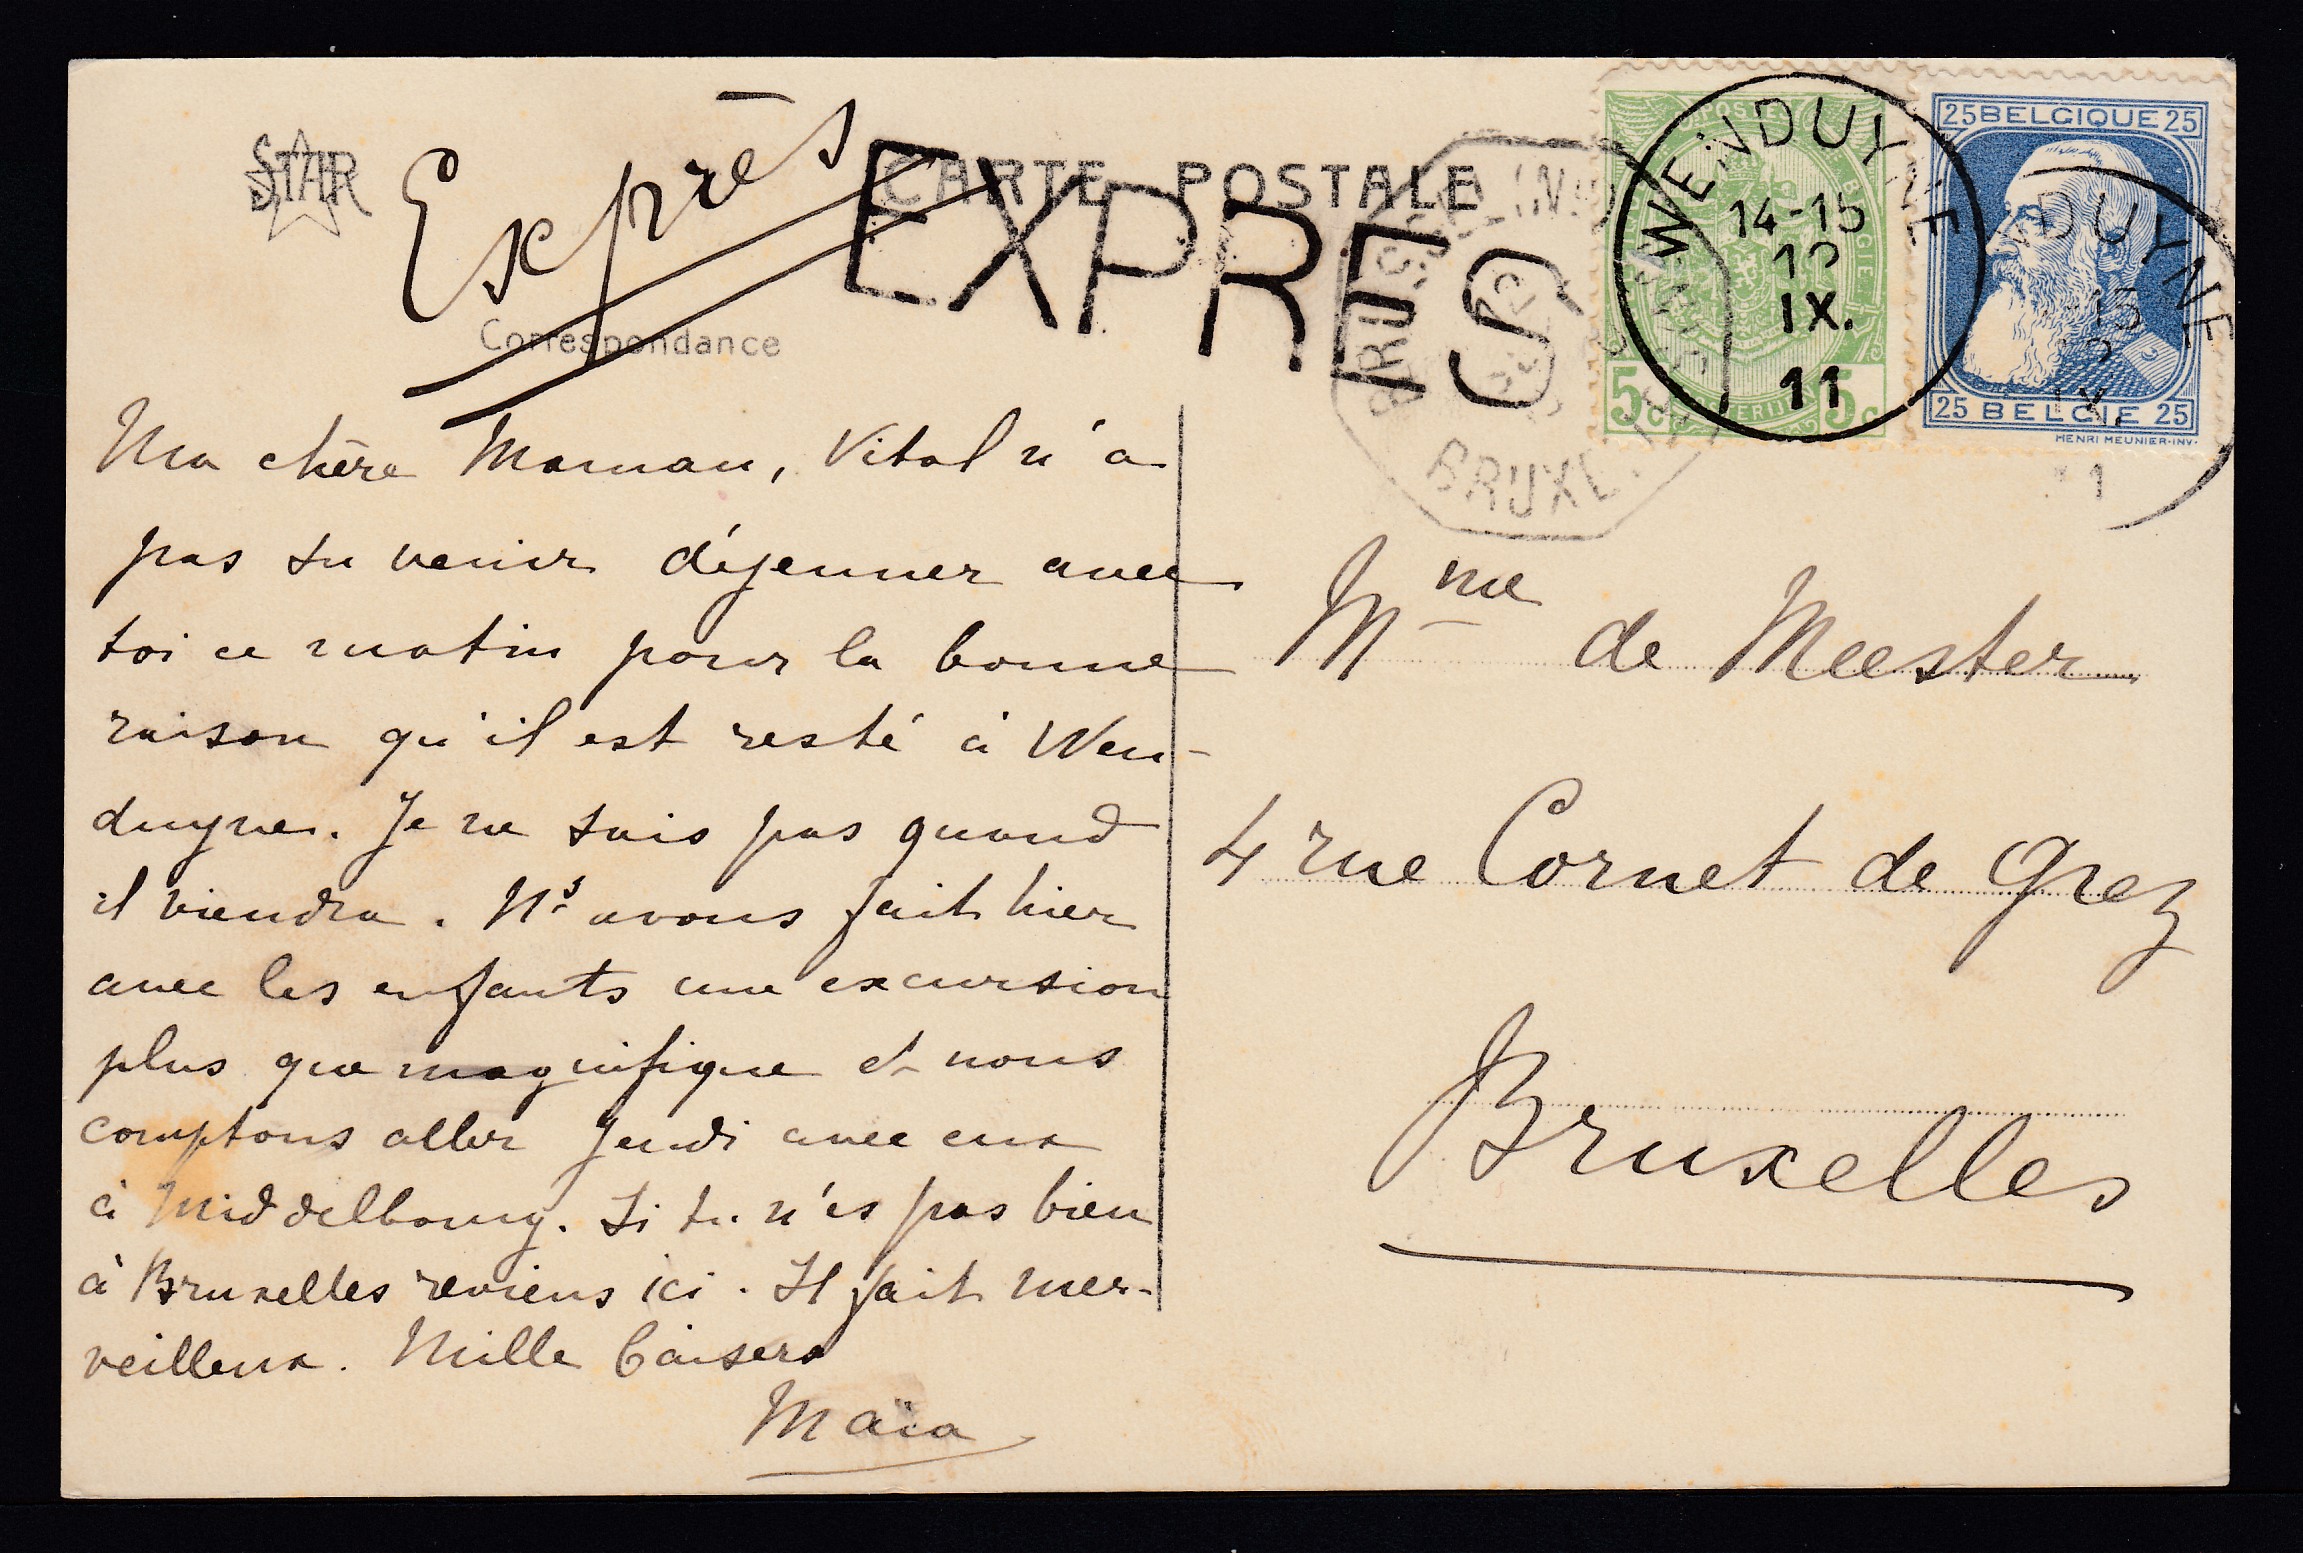 STAR
Exprès
CARTE POSTALE
EXPRES
Correspondance
Ma chère Maman, Vital n'a
pas su venir déjeuner avec
toi ce matin pour la bonne
raison qu'il est resté à Wen-
duyne. Je ne sais pas quand
il viendra. Ns avons fait hier
avec les enfants une excursion
plus que magnifique et nous
comptons aller jeudi avec eux
à Middelbourg. Si tu n'es pas bien
à Bruxelles reviens ici. Il fait mer-
veilleux. Mille baisers
Maïa
5c 5c
WENDUYNE
14-15
IX.
11
25 BELGIQUE 25
25 BELGIE 25
HENRI MEUNIER-INV.
DUYNE
15
IX.
11
BRUSSEL
BRUXEL
Mme de Meester
4 rue Cornet de Grez
Bruxelles